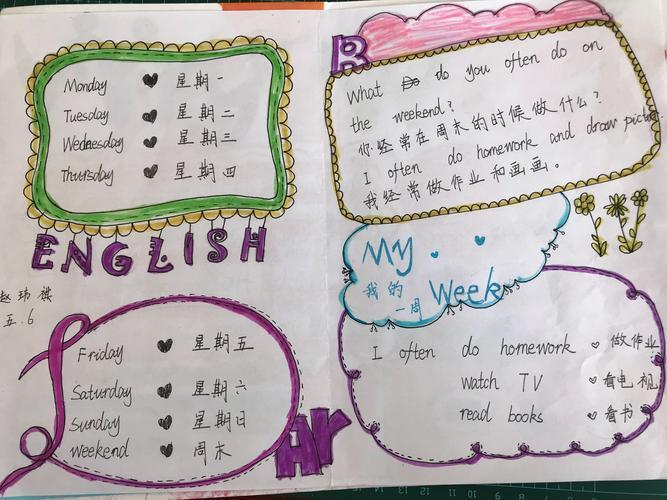 Monday ♥ 星期一
Tuesday ♥ 星期二
Wednesday ♥ 星期三
Thursday ♥ 星期四
ENGLISH
赵玮祺
五.6
Friday ♥ 星期五
Saturday ♥ 星期六
Sunday ♥ 星期日
Weekend ♥ 周末
Ar
R
What do you often do on
the weekend?
你经常在周末的时候做什么?
I often do homework and draw pictur
我经常做作业和画画。
My
我的
一周 Week
I often do homework ♥ 做作业
watch TV ♥ 看电视
read books ♥ 看书